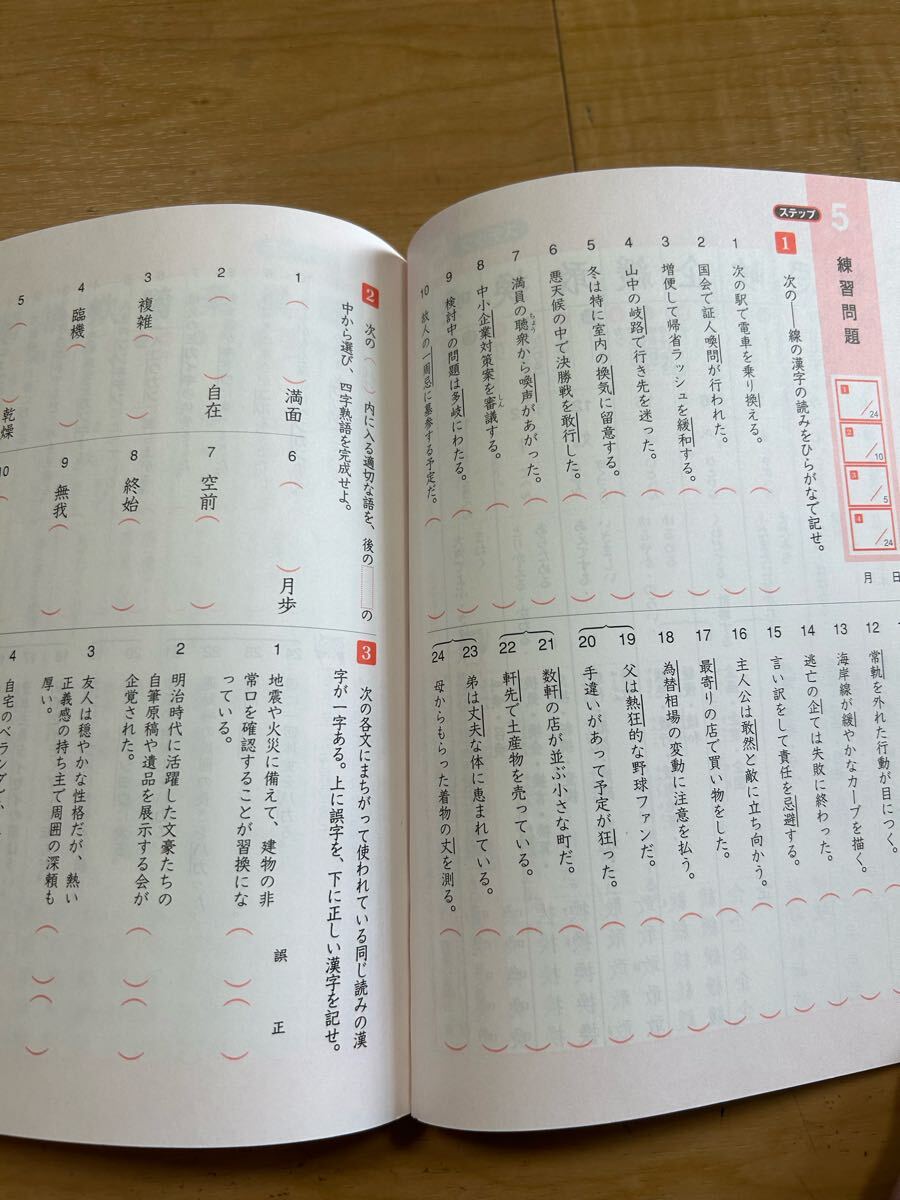 ステップ
5
練習問題
1 /24
2 /10
3 /5
4 /24
月 日
1 次の――線の漢字の読みをひらがなで記せ。
1 次の駅で電車を乗り換える。( )
2 国会で証人喚問が行われた。( )
3 増便して帰省ラッシュを緩和する。( )
4 山中の岐路で行き先を迷った。( )
5 冬は特に室内の換気に留意する。( )
6 悪天候の中で決勝戦を敢行した。( )
7 満員の聴衆から喚声があがった。( )
ちょう
8 中小企業対策案を審議する。( )
しん
9 検討中の問題は多岐にわたる。( )
10 故人の一周忌に墓参する予定だ。( )
12 常軌を外れた行動が目につく。( )
13 海岸線が緩やかなカーブを描く。( )
14 逃亡の企ては失敗に終わった。( )
15 言い訳をして責任を忌避する。( )
16 主人公は敢然と敵に立ち向かう。( )
17 最寄りの店で買い物をした。( )
18 為替相場の変動に注意を払う。( )
19 父は熱狂的な野球ファンだ。( )
20 手違いがあって予定が狂った。( )
21 数軒の店が並ぶ小さな町だ。( )
22 軒先で土産物を売っている。( )
23 弟は丈夫な体に恵まれている。( )
24 母からもらった着物の丈を測る。( )
2 次の( )内に入る適切な語を、後の の
中から選び、四字熟語を完成せよ。
1 ( )満面
2 ( )自在
3 複雑( )
4 臨機( )
5 ( )乾燥
6 ( )月歩
7 空前( )
8 終始( )
9 無我( )
10
3 次の各文にまちがって使われている同じ読みの漢
字が一字ある。上に誤字を、下に正しい漢字を記せ。
誤 正
1 地震や火災に備えて、建物の非
常口を確認することが習換にな
っている。( )( )
2 明治時代に活躍した文豪たちの
自筆原稿や遺品を展示する会が
企覚された。( )( )
3 友人は穏やかな性格だが、熱い
正義感の持ち主で周囲の深頼も
厚い。( )( )
4 自宅のベラン